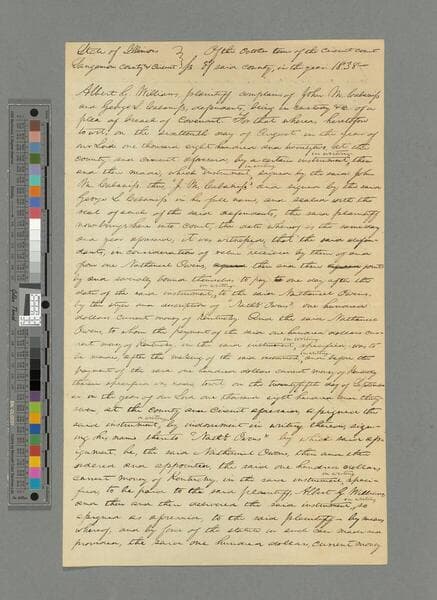 State of Illinois } Of the October term of the Circuit court
Sangamon county & Circuit } ss of said county, in the year 1838—
Albert G. Williams, plaintiff complains of John M. Calasap
and George L. Calasap, defendants, being in custody &c. of a
plea of breach of Covenant. For that whereas heretofore
to wit, on the sixteenth day of August in the year of
our Lord one thousand eight hundred and at the
county and circuit aforesaid, by a certain instrument, then
in writing
and there made, which instrument, signed by the said John
in writing
M. Calasap thus, "J. M. Calasap" and signed by the said
George L. Calasap in his full name, and sealed with the
seal of each of the said defendants, the said plaintiff
now brings here into court, the date whereof is the same day
and year aforesaid, it was witnessed, that the said defen-
dants, in consideration of value received by them of and
from one Nathaniel Owens then and there joint-
ly and severally bound themselves to pay one day after the
date of the said instrument, to the said Nathaniel Owens,
in writing
by the style and description of "Nathl Owens" one hundred
dollars current money of Kentucky. And the said Nathaniel
Owens, to whom the payment of the said one hundred dollars cur-
rent money of Kentucky, in the said instrument, specified, was to
in writing
be made, after the making of the said instrument, and before the
in writing
payment of the said one hundred dollars current money of Kentucky
therein specified on the twentyfifth day of September
in the year of our Lord one thousand eight hundred and thirty
seven, at the county and Circuit aforesaid assigned the
said instrument, by indorsement in writing thereon, sign-
in writing
ing his name thereto "Nathl Owens" by which said assi-
gnment he, the said Nathaniel Owens, then and there
ordered and appointed the said one hundred dollars,
current money of Kentucky, in the said instrument, speci-
in writing
fied, to be paid to the said plaintiff, Albert G. Williams,
and then and there delivered the said instrument, so
in writing
assigned as aforesaid, to the said plaintiff— by means
whereof, and by force of the statute in such case made and
provided, the said one hundred dollars, current money